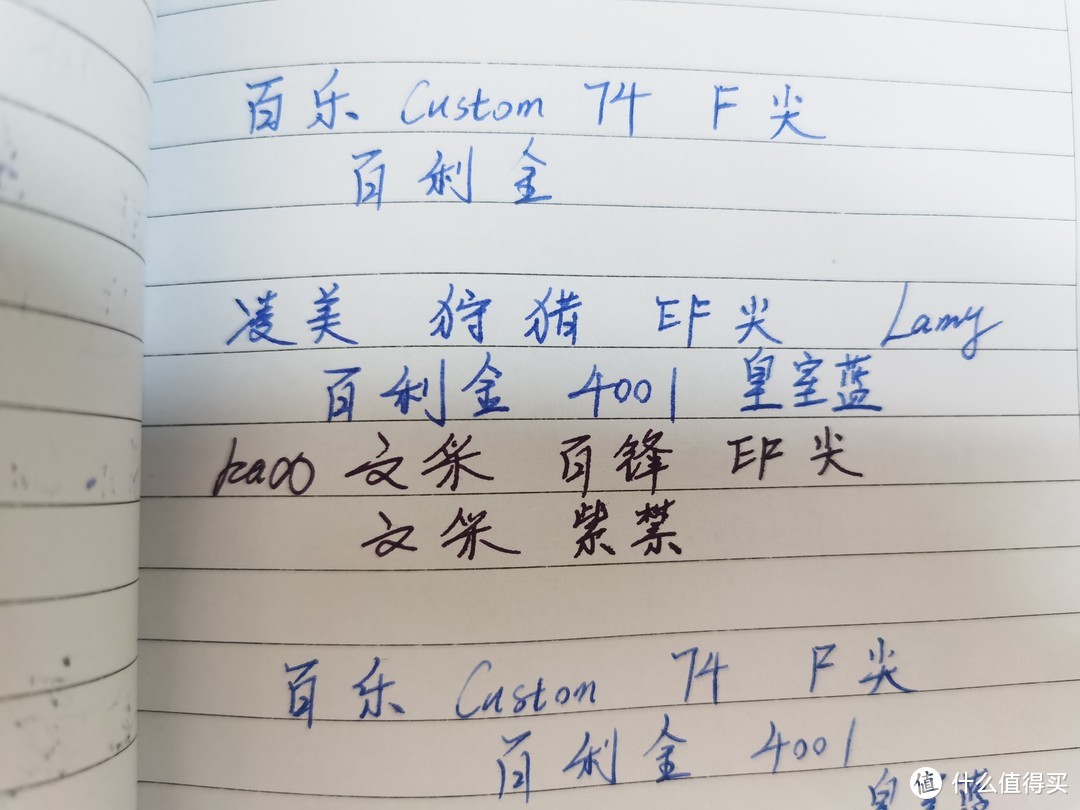 百乐 Custom 74 F 尖
百利金
凌美 狩猎 EF 尖 Lamy
百利金 4001 皇室蓝
kaco 文采 百锋 EF 尖
文采 紫禁
百乐 Custom 74 F 尖
百利金 4001
皇室蓝
值 什么值得买